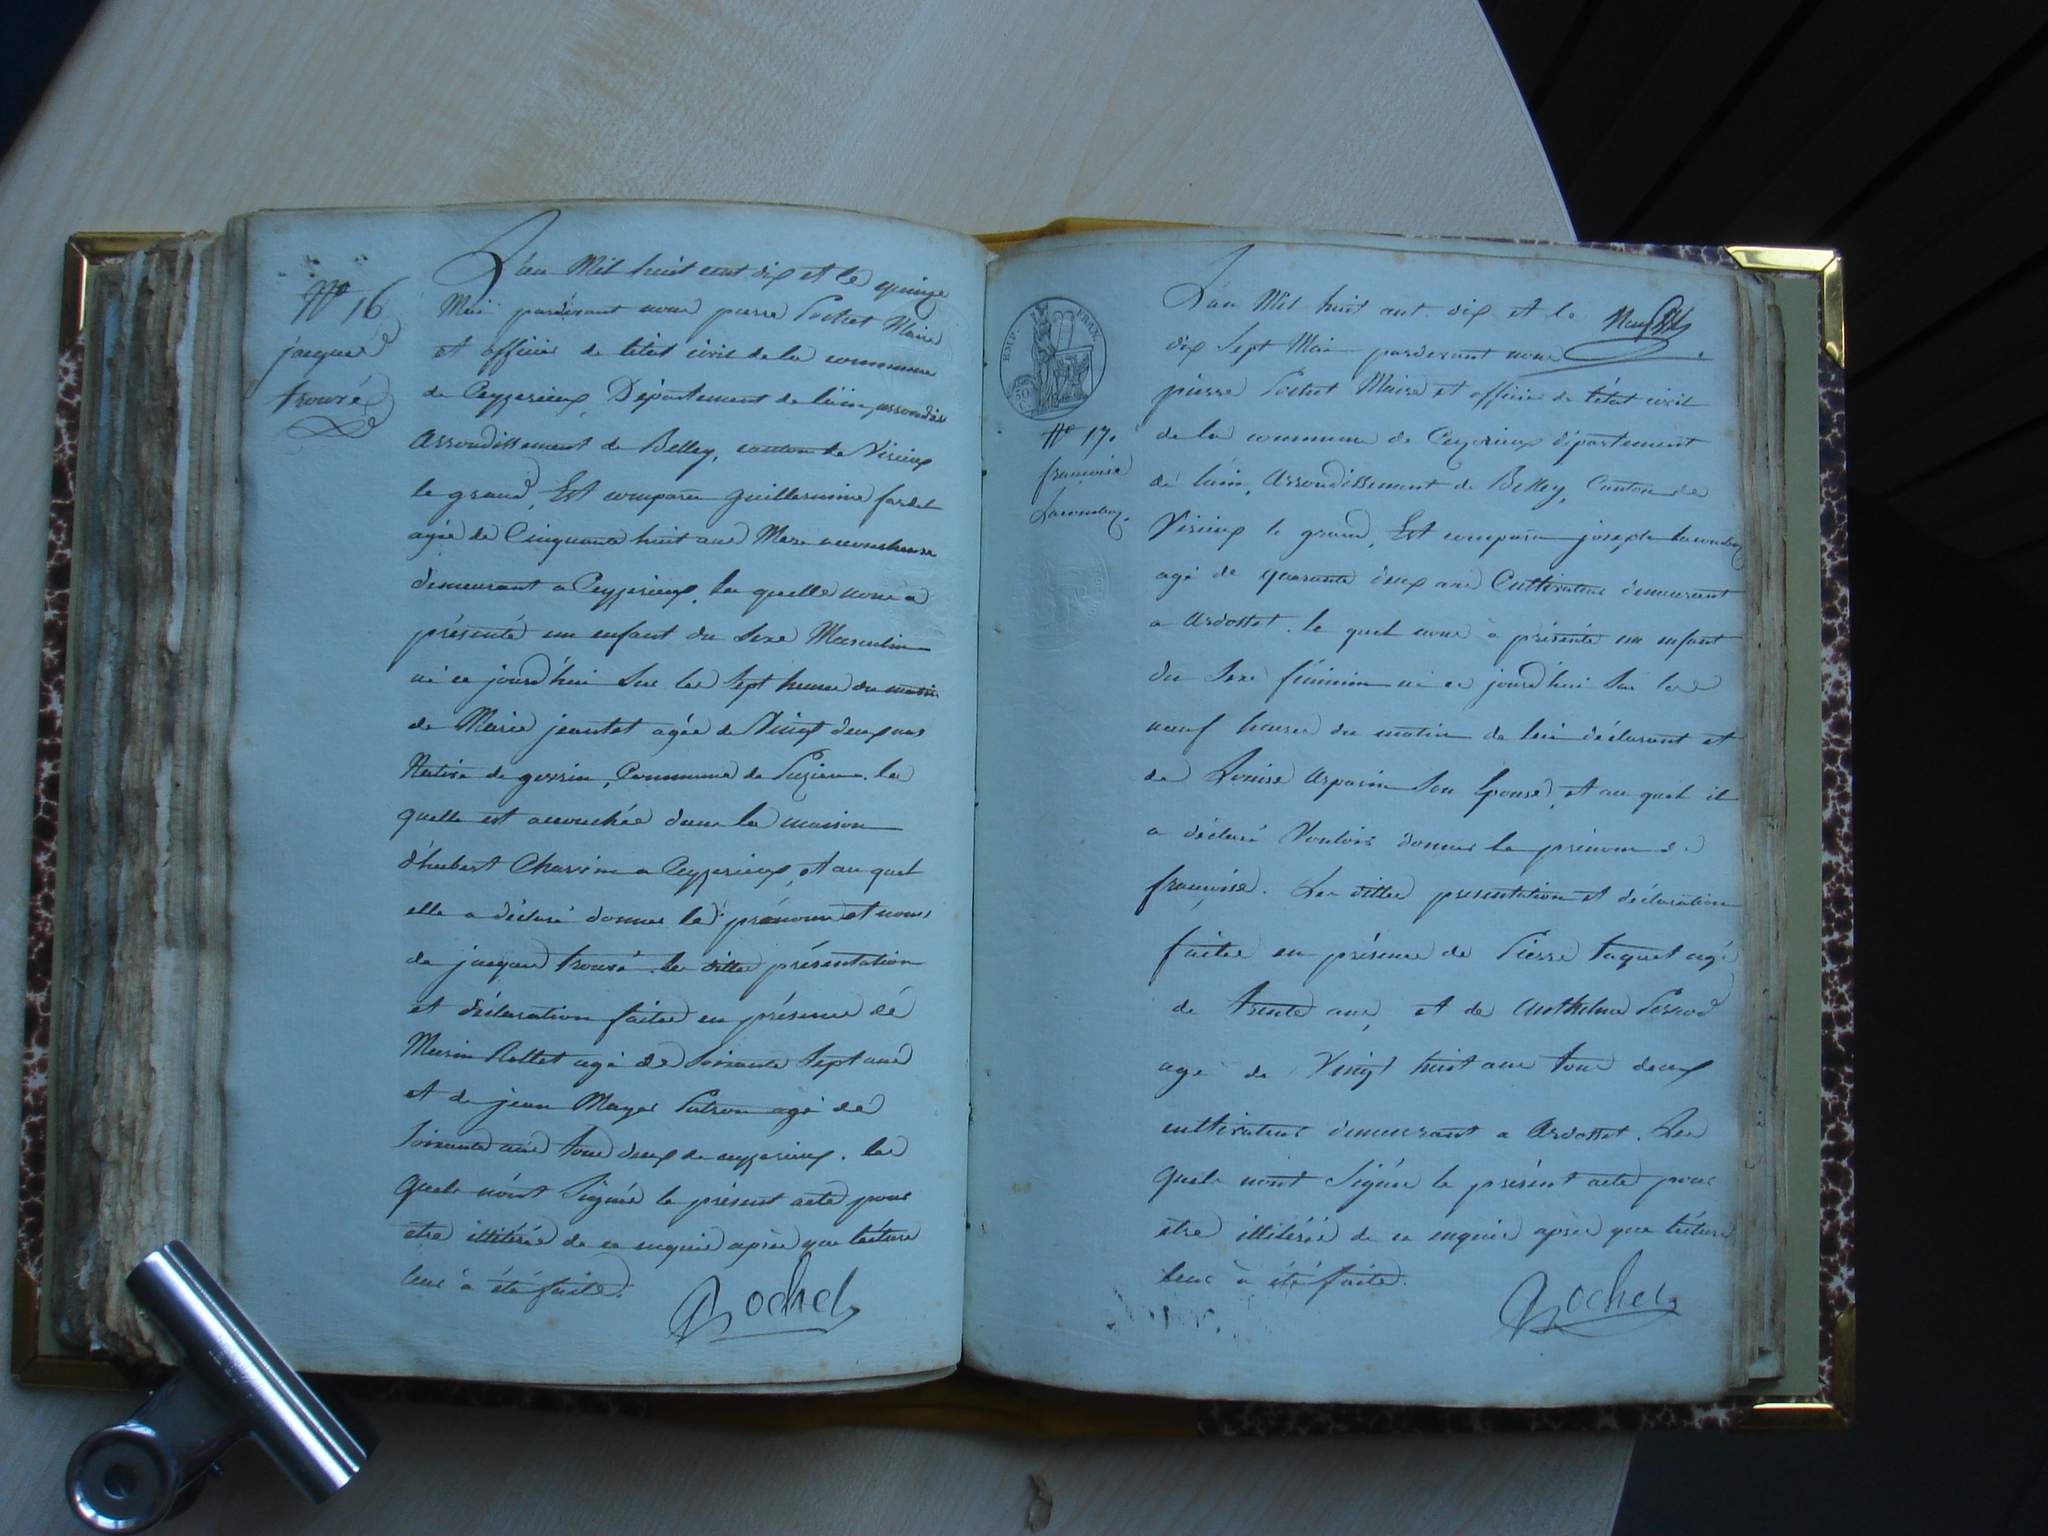 N° 16
jacques
trouvé
L'an Mil huit cent dix et le quinze
Mai pardevant nous pierre Pochet Maire
et officier de l'état civil de la commune
de Ceyzerieux, Département de l'ain,
Arrondissement de Belley, canton de Virieux
le grand, Est comparue guillermine
agée de Cinquante huit ans Mere accoucheuse
demeurant a Ceyzerieux, la quelle nous a
présenté un enfant du Sexe Masculin
né ce jourd'hui Sur les Sept heures du matin
de Marie jeantet agée de Vingt deux ans
Native de gessin, Commune de la
quelle est accouchée dans la maison
d'hubert Charvin a Ceyzerieux, et au quel
elle a déclaré donner les prénom et nom
de jacques trouvé. les dittes présentation
et déclaration faites en présence dé
Rollet agé de Soixante Sept ans
et de jean Mayer Patron agé de
Soixante ans tous deux de ceyzerieux. les
quels n'ont Signés le présent acte pour
etre illitérés de ce enquis après que lécture
leur à été faite.
Pochet
EMP. FRAN.
50
N° 17.
françoise
Lacombaz.
L'an Mil huit cent dix et le
dix Sept Mai pardevant nous
pierre Pochet Maire et officier de l'état civil
de la commune de Ceyzerieux département
dé l'ain, Arrondissement de Belley, Canton de
Virieux le grand, Est comparu joseph Lacombaz
agé de quarante deux ans Cultivateur demeurant
a Ardosset. le quel nous à présenté un enfant
du Sexe féminin né ce jourd'hui Sur les
neuf heures du matin de lui déclarant et
de Louise Asparin Son Epouse, et au quel il
a déclaré Vouloir donner le prénom de
françoise. Les dittes presentation et déclaration
faites en présence de Pierre taquet agé
de trente ans, et de Anthelme
agé de Vingt huit ans tous deux
cultivateurs demeurant a Ardosset. Les
quels n'ont Signés le présent acte pour
etre illitérés de ce enquis après que lécture
leur à été faite.
Pochet